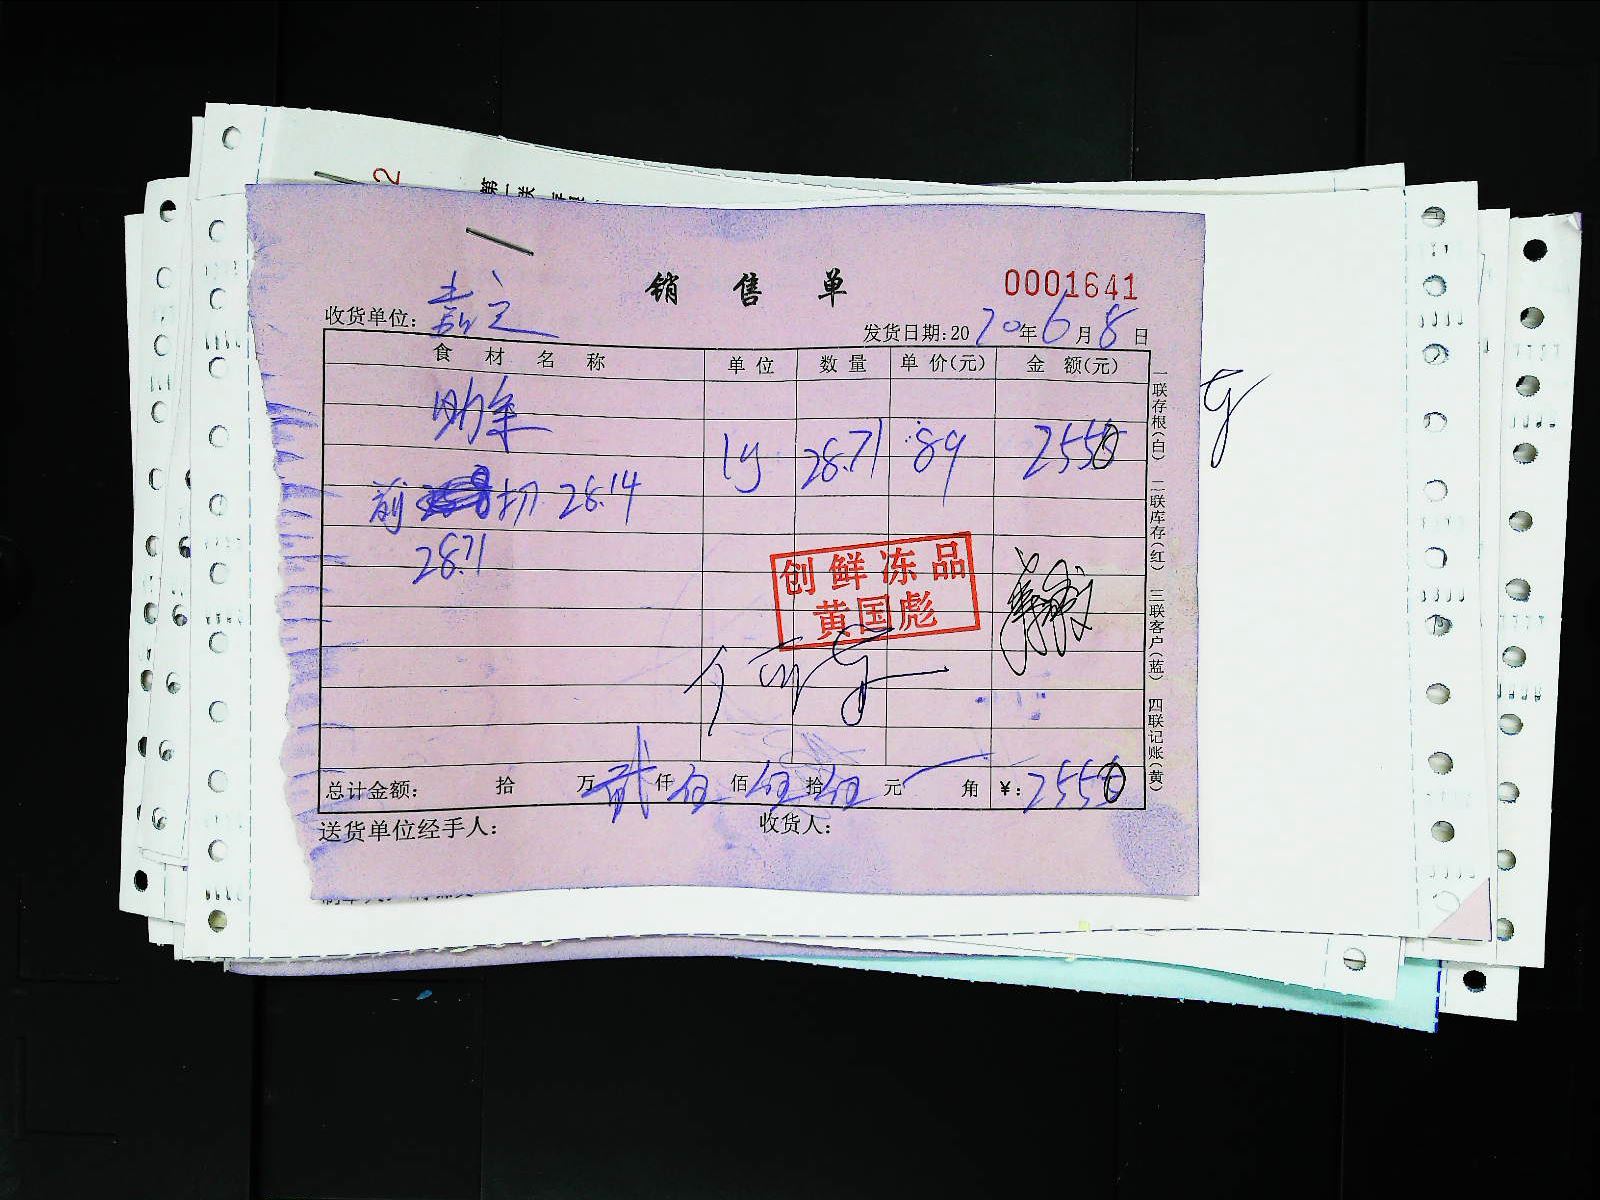 2
销售单
0001641
收货单位：嘉立
发货日期：2020年6月8日
食材名称 单位 数量 单价(元) 金额(元)
1y 28.71 89 2550
前 扣 28.14
28.71
创鲜冻品
黄国彪
总计金额： 拾 万 贰 仟 伍 佰 伍 拾 伍 元 角 ¥：2550
送货单位经手人： 收货人：
一联存根(白) 二联库存(红) 三联客户(蓝) 四联记账(黄)